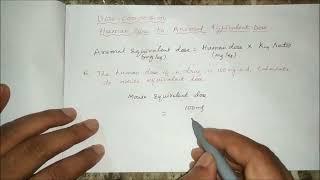 Dose conversion
Human Dose to Animal Equivalent Dose
Animal Equivalent dose = Human dose × Km Ratio
(mg/kg) (mg/kg)
Q. The human dose of a drug is 100 mg/kg, Calculate
to mouse equivalent dose.
Mouse Equivalent dose
= 100 mg